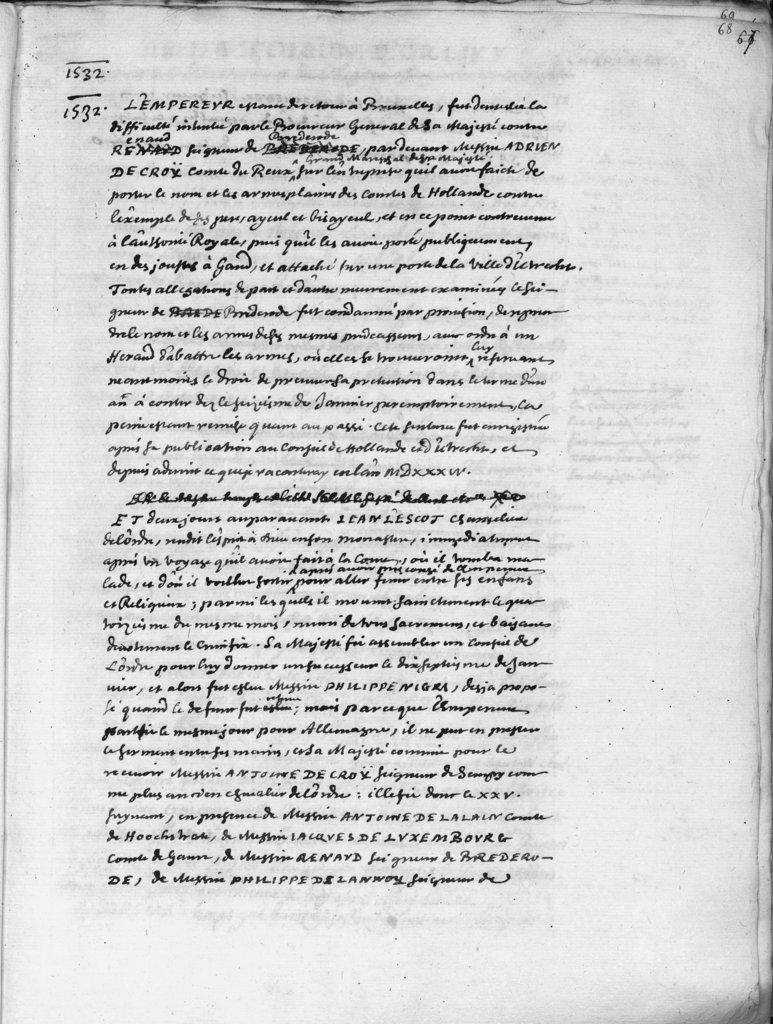 60
68 67
1532.
1532. L'EMPEREUR estant de retour à Bruxelles, fut la
difficulté intentée par le Procureur General de Sa Majesté contre
RENAUD enaud Seigneur de BREDERODE Brederode, par devant Messire ADRIEN
DE CROŸ Comte du Reux Grand Mareschal de Sa Majesté, sur l'entreprise qu'il avoit faicte de
porter le nom et les armes plaines des Comtes de Hollande contre
l'exemple de ses pere, ayeul et bisayeul, et en ce point contrevenu
à l'authorité Royale, puis qu'il les avoit porté publiquement,
en des joustes à Gand, et attaché sur une porte de la ville d'Utrecht.
Toutes allegations de part et d'autre meurement examinées le Sei-
gneur de BREDE Brederode fut condamné par provision, de repren-
dre le nom et les armes de ses mesmes predecesseurs, avec ordre à un
Heraud d'abattre les armes, où elles se trouveroient, luy reservant
neantmoins le droit de preuver sa pretention dans le terme d'un
an à conter dez le seiziesme de Janvier peremptoirement, la
peine estant remise quant au passé. Cete sentence fut enregistrée
apres sa publication au Conseil de Hollande et d'Utrecht, et
depuis advint ce que je raconteray en l'an MDXXXIV.
ET deux jours auparavant JEAN LESCOT Chancelier
de l'Ordre, rendit l'esprit à Dieu en son monastere, immediatement
apres un voyage qu'il avoit fait à la Cour, où il tomba ma-
lade, et d'où il voulut sortir apres avoir pris congé de l'Empereur pour aller finir entre ses enfans
et Religieux; parmi lesquels il mourut sainctement le qua-
torziesme du mesme mois, muni de tous Sacremens, et baisant
devotement le Crucifix. Sa Majesté fit assembler un Conseil de
l'Ordre pour luy donner un successeur le dixseptiesme de Jan-
vier, et alors fut esleu Messire PHILIPPE NIGRI, desja propo-
sé quand le defunt fut esleu; mais parceque l'Empereur
partit le mesme jour pour Allemagne, il ne peut en prester
le serment entre ses mains, et Sa Majesté commit pour le
recevoir Messire ANTOINE DE CROŸ Seigneur de Sempy com-
me plus ancien chevalier de l'Ordre: il le fit donc le XXV.
suyvant, en presence de Messire ANTOINE DE LALAIN Comte
de Hoochstrate, de Messire IACQUES DE LUXEMBOURG
Comte de Gaure, de Messire RENAUD Seigneur de BREDERO-
DE, de Messire PHILIPPE DE LANNOY Seigneur de